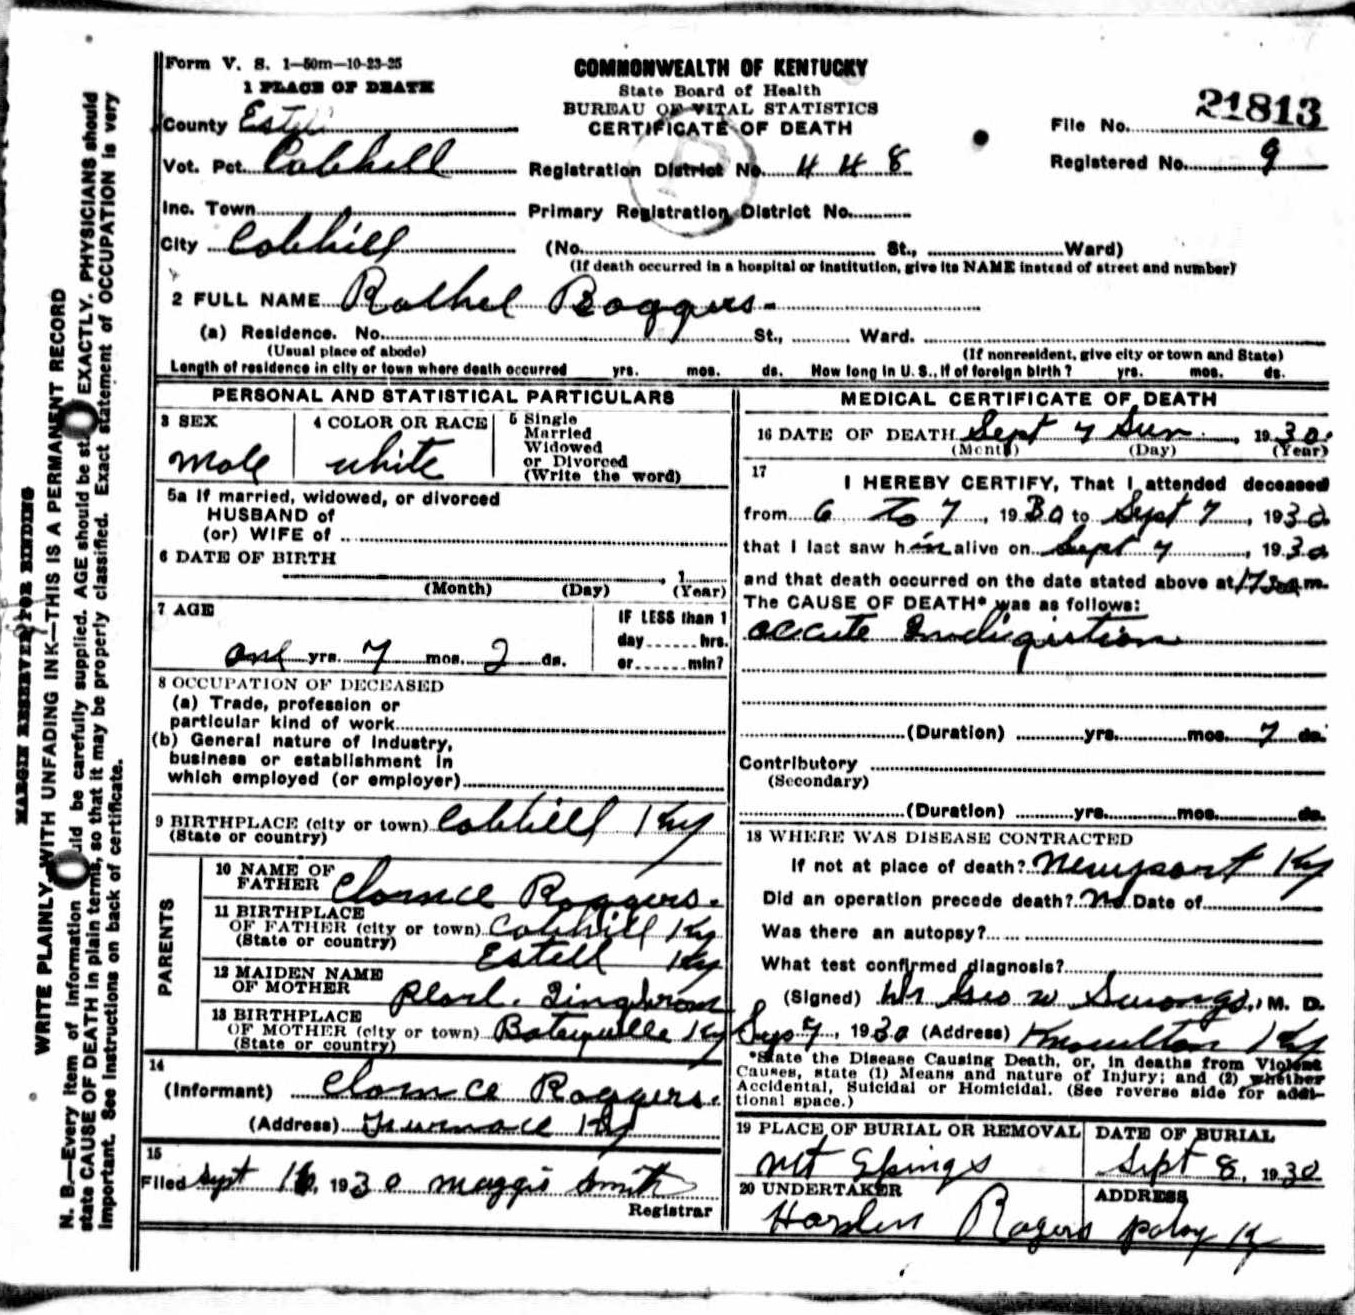 Form V. S. 1-50m-10-23-25
COMMONWEALTH OF KENTUCKY
State Board of Health
BUREAU OF VITAL STATISTICS
CERTIFICATE OF DEATH
1 PLACE OF DEATH
County
Vot. Pct. Cobhill
Inc. Town
City Cobhill
Registration District No. 448
Primary Registration District No.
File No. 21813
Registered No. 9
(No. St., Ward)
(If death occurred in a hospital or institution, give its NAME instead of street and number)
2 FULL NAME Rathel Roggers
(a) Residence. No. St., Ward.
(Usual place of abode) (If nonresident, give city or town and State)
Length of residence in city or town where death occurred yrs. mos. ds. How long in U. S., if of foreign birth? yrs. mos. ds.
PERSONAL AND STATISTICAL PARTICULARS
3 SEX
male
4 COLOR OR RACE
white
5 Single
Married
Widowed
or Divorced
(Write the word)
5a If married, widowed, or divorced
HUSBAND of
(or) WIFE of
6 DATE OF BIRTH
(Month) (Day) 1 (Year)
7 AGE
one yrs. 7 mos. 2 ds.
IF LESS than 1
day hrs.
or min?
8 OCCUPATION OF DECEASED
(a) Trade, profession or
particular kind of work
(b) General nature of industry,
business or establishment in
which employed (or employer)
9 BIRTHPLACE (city or town) Cobhill Ky
(State or country)
PARENTS
10 NAME OF
FATHER Clornce Roggers.
11 BIRTHPLACE
OF FATHER (city or town) Cobhill Ky
(State or country) Estell Ky
12 MAIDEN NAME
OF MOTHER Pearl
13 BIRTHPLACE
OF MOTHER (city or town) Ky
(State or country)
14
(Informant) Clornce Roggers.
(Address) Furnace Ky
15
Filed Sept 16, 1930 Maggie Smith
Registrar
MEDICAL CERTIFICATE OF DEATH
16 DATE OF DEATH Sept 7 Sun, 1930.
(Month) (Day) (Year)
17
I HEREBY CERTIFY, That I attended deceased
from 6 To 7, 1930 to Sept 7, 1930
that I last saw him alive on Sept 7, 1930
and that death occurred on the date stated above at m.
The CAUSE OF DEATH* was as follows:
accute Indigistion
(Duration) yrs. mos. 7 ds.
Contributory
(Secondary)
(Duration) yrs. mos. ds.
18 WHERE WAS DISEASE CONTRACTED
If not at place of death? Newport Ky
Did an operation precede death? No Date of
Was there an autopsy?
What test confirmed diagnosis?
(Signed) Dr Geo W, M. D.
7, 1930 (Address) Ky
*State the Disease Causing Death, or, in deaths from Violent
Causes, state (1) Means and nature of Injury; and (2) whether
Accidental, Suicidal or Homicidal. (See reverse side for addi-
tional space.)
19 PLACE OF BURIAL OR REMOVAL
Mt Springs
DATE OF BURIAL
Sept 8, 1930
20 UNDERTAKER
Harlen Rogers
ADDRESS
MARGIN RESERVED FOR BINDING
WRITE PLAINLY WITH UNFADING INK—THIS IS A PERMANENT RECORD
N. B.—Every item of information should be carefully supplied. AGE should be stated EXACTLY. PHYSICIANS should
state CAUSE OF DEATH in plain terms, so that it may be properly classified. Exact statement of OCCUPATION is very
important. See instructions on back of certificate.